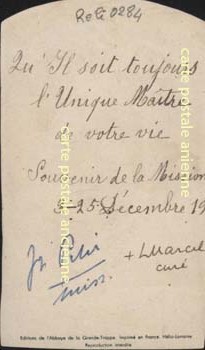 ReG 0284
Qu'Il soit toujours
l'Unique Maître
de votre vie
Souvenir de la Mission
3-25 Décembre 19
miss.
+ Marcel
curé
Editions de l'Abbaye de la Grande-Trappe Imprimé en France Hélio-Lorraine
Reproduction interdite
carte postale ancienne
carte postale ancienne